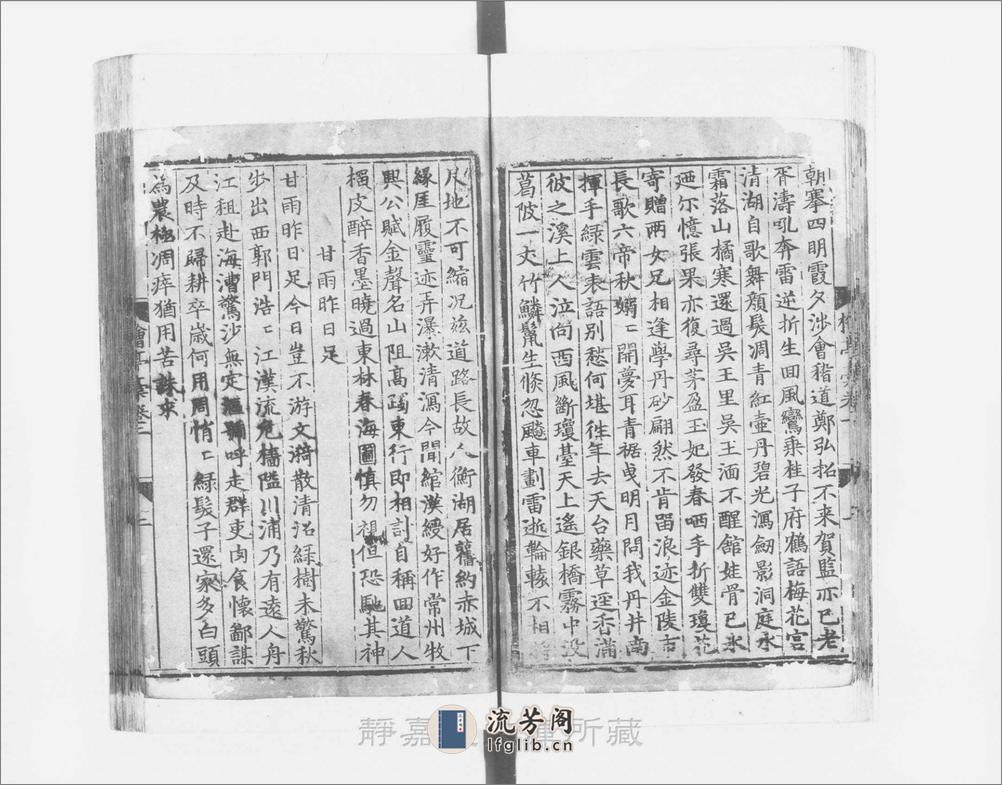 朝搴四明霞夕涉會稽道鄭弘拓不来賀監亦已老
胥濤吼奔雷逆折生回風鸞乘桂子府鶴語梅花宫
清湖自歌舞顔髮凋青紅壷丹碧光瀉劒影洞庭水
霜落山橘寒還過吳王里吳王湎不醒館娃骨已氷
廼尔憶張果亦復尋茅盈玉妃發春哂手折雙瓊花
寄贈兩女兄相逢學丹砂翩然不肯畱浪迹金陵市
長歌六帝秋嫋〻開夢耳青裾曵明月問我丹井南
揮手緑雲表語别愁何堪徃年去天台藥草逕香滿
彼之溪上人泣尚西風斷瓊䑓天上遙銀橋霧中没
葛陂一丈竹鱗鬣生倏忽飈車劃雷逝輪轄不相
尺地不可縮况兹道路長故人衡湖居舊約赤城下
緣厓履靈迹弄瀑漱清瀉今聞綰漢綬好作常州牧
興公賦金聲名山阻髙躅東行即相討自稱回道人
櫊皮醉香墨曉過東林春海圖慎勿視但恐馳其神
甘雨昨日足
甘雨昨日足今日豈不游文漪散清沄緑樹未驚秋
步出西郭門浩〻江漢流危檣隘川浦乃有遠人舟
江租赴海漕驚沙無定 呼走群吏肉食懷鄙謀
及時不歸耕卒歲何用周悄〻緑髮子還家多白頭
為農極凋瘁猶用苦誅求
靜嘉 所藏
流芳阁
lfglib.cn